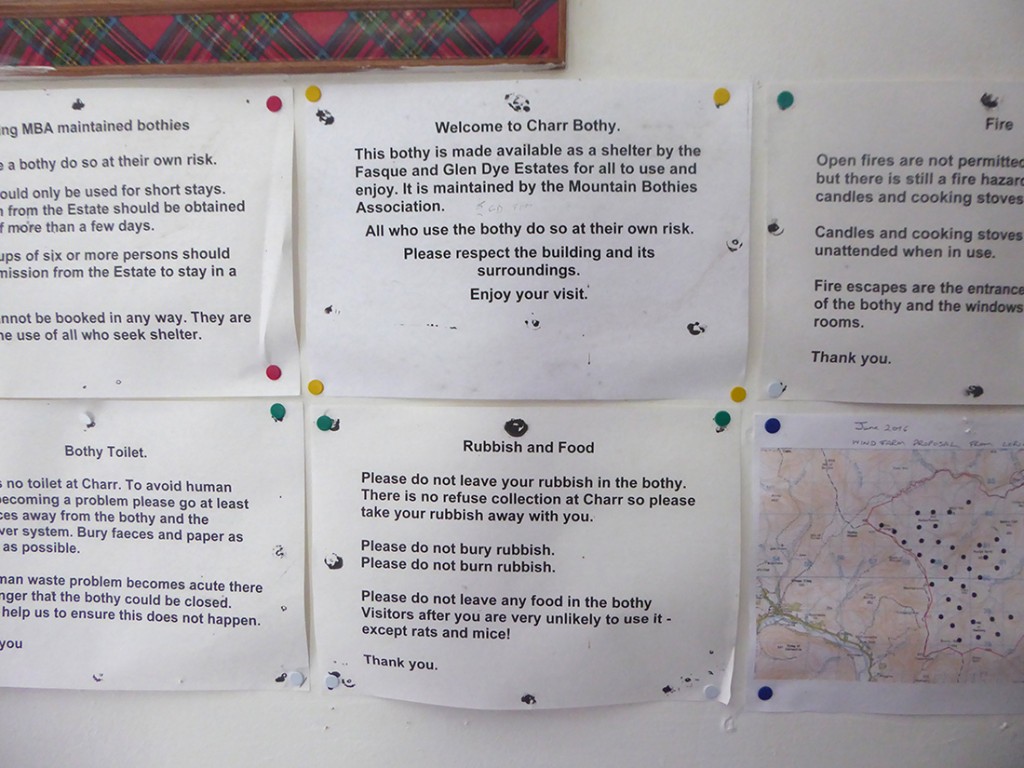 ng MBA maintained bothies
e a bothy do so at their own risk.
ould only be used for short stays.
n from the Estate should be obtained
f more than a few days.
ups of six or more persons should
mission from the Estate to stay in a
nnot be booked in any way. They are
he use of all who seek shelter.
Welcome to Charr Bothy.
This bothy is made available as a shelter by the
Fasque and Glen Dye Estates for all to use and
enjoy. It is maintained by the Mountain Bothies
Association.
All who use the bothy do so at their own risk.
Please respect the building and its
surroundings.
Enjoy your visit.
Fire
Open fires are not permitted
but there is still a fire hazard
candles and cooking stoves
Candles and cooking stoves
unattended when in use.
Fire escapes are the entrance
of the bothy and the windows
rooms.
Thank you.
Bothy Toilet.
s no toilet at Charr. To avoid human
ecoming a problem please go at least
ces away from the bothy and the
ver system. Bury faeces and paper as
as possible.
man waste problem becomes acute there
nger that the bothy could be closed.
help us to ensure this does not happen.
you
Rubbish and Food
Please do not leave your rubbish in the bothy.
There is no refuse collection at Charr so please
take your rubbish away with you.
Please do not bury rubbish.
Please do not burn rubbish.
Please do not leave any food in the bothy
Visitors after you are very unlikely to use it -
except rats and mice!
Thank you.
June 2015
WIND FARM PROPOSAL FROM